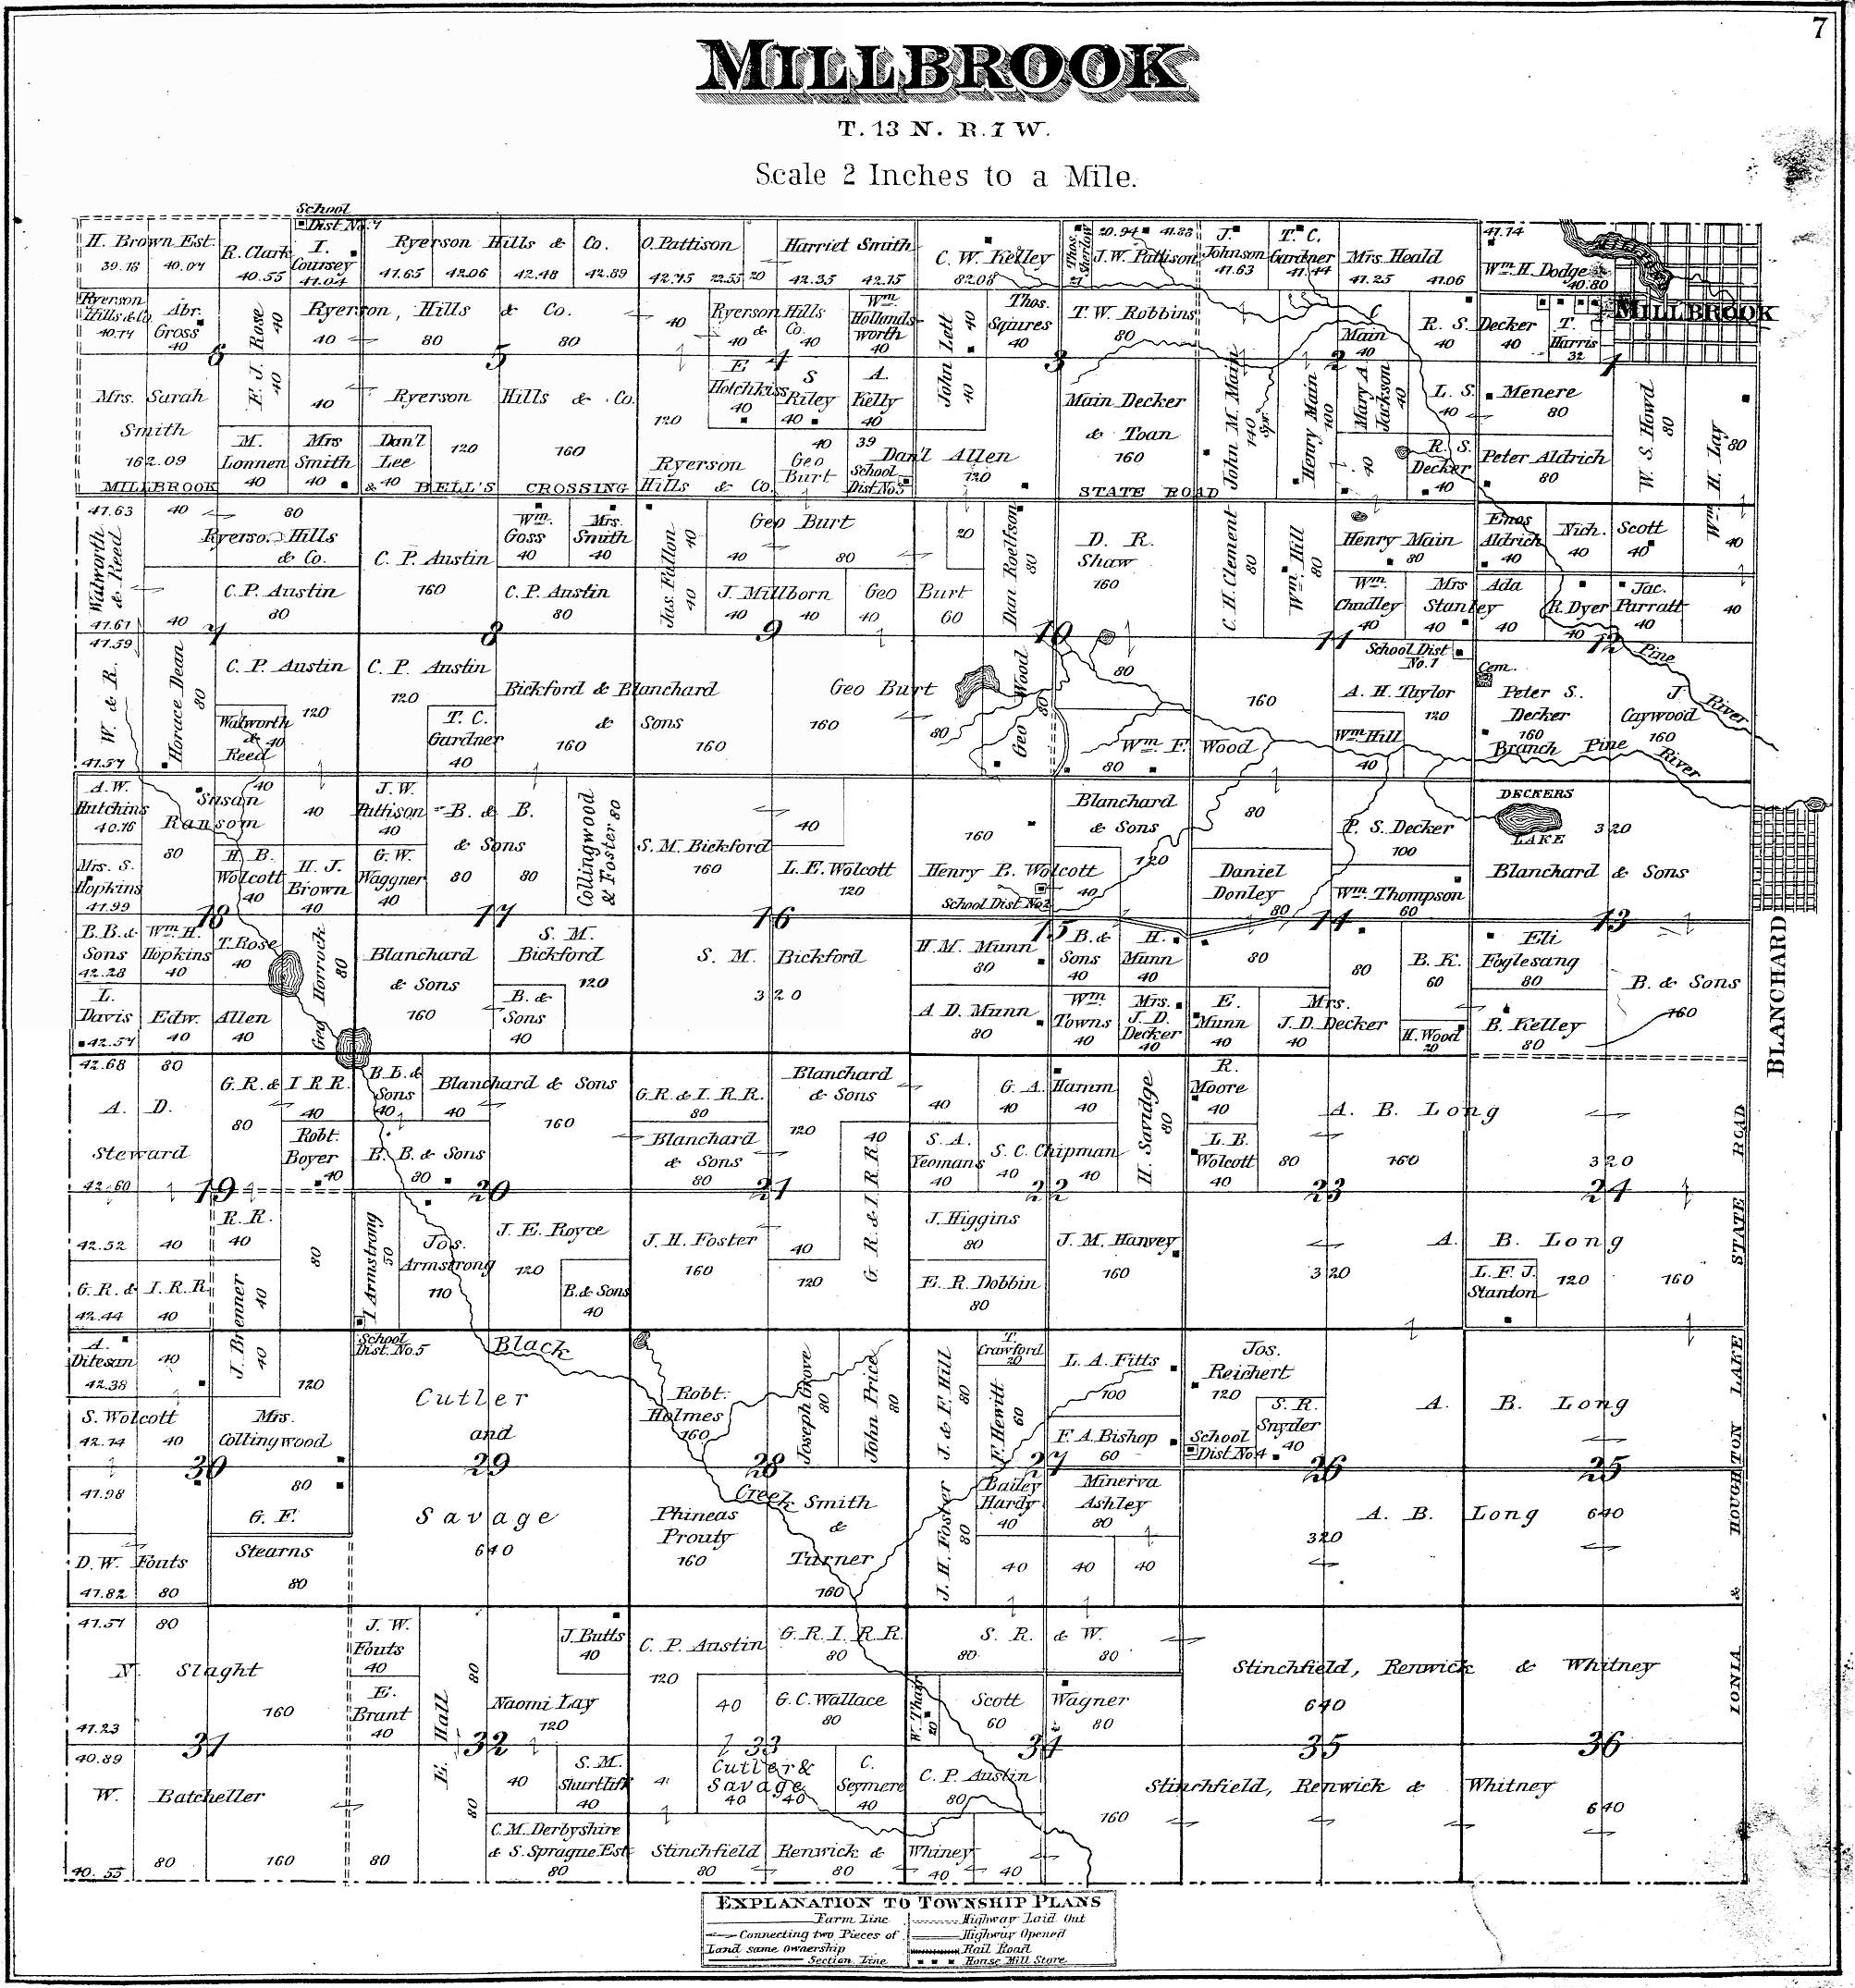 7
MILLBROOK
T. 13 N. R. 7 W.
Scale 2 Inches to a Mile.
School
Dist No. 7
H. Brown Est.
39.16 40.04
R. Clark
40.55
I.
Coursey
41.04
Ryerson Hills & Co.
41.65 42.06 42.48 42.89
O. Pattison
42.75 22.55 20
Harriet Smith
42.35 42.15
C. W. Kelley
82.08
Thos. Sherlow
21
20.94 41.83
J. W. Pattison
J.
Johnson
41.63
T. C.
Gardner
41.44
Mrs. Heald
41.25 41.06
41.14
Wm. H. Dodge
40.80
MILLBROOK
Ryerson
Hills & Co.
40.74
Abr.
Gross
40
E. J. Rose
40
40
Ryerson, Hills & Co.
40 80 80
40
Ryerson Hills
& Co.
40 40
Wm.
Hollands-
worth
40
John Lett
40
40
Thos.
Squires
40
T. W. Robbins
80
C
Main
40
R. S. Decker
40 40
T.
Harris
32
6 5 4 3 2 1
Mrs. Sarah
Smith
162.09
M.
Lonnen
40
Mrs
Smith
40
40
Ryerson Hills & Co.
Dan'l
Lee
40
120
160
120
Ryerson
Hills & Co.
E
Hotchkiss
40
S
Riley
40
A.
Kelly
40
40
Geo
Burt
39
School
Dist No 3
Dan'l Allen
120
Main Decker
& Toan
160
John M. Main
140
Spr.
Henry Main
100
Mary A.
Jackson
40
40
L. S. Menere
40 80
R. S.
Decker
40
Peter Aldrich
80
W. S. Howd
80
Wm. H. Lay
80
40
MILLBROOK & BELL'S CROSSING STATE ROAD
41.63
Walworth
& Reed
41.61
40
80
Ryerson Hills
& Co.
C. P. Austin
80
40
C. P. Austin
160
Wm.
Goss
40
Mrs.
Smith
40
C. P. Austin
80
Jas. Fallon
40
40
Geo Burt
40 80
J. Millborn
40 40
Geo Burt
40 60
20
Dan Roelfson
80
D. R.
Shaw
160
C. H. Clement
80
Wm. Hill
80
Henry Main
80
Wm.
Chadley
40
Mrs
Stanley
40
Enos
Aldrich
40
Nich. Scott
40 40
Ada
40
R. Dyer
40
Jac.
Parratt
40
40
7 8 9 10 11 12
41.59
W. & R.
41.57
Horace Dean
80
C. P. Austin
120
Walworth
&
Reed
40
C. P. Austin
120
T. C.
Gardner
40
Bickford & Blanchard
& Sons
160 160
Geo Burt
160
80
Geo Wood
80
80
Wm. F. Wood
80
160
School Dist
No. 1
A. H. Taylor
120
Wm Hill
40
Cem.
Peter S.
Decker
160
J.
Caywood
160
Pine River
Branch Pine River
A. W.
Hutchins
40.16
Susan
Ransom
80
40
Mrs. S.
Hopkins
41.99
H. B.
Wolcott
40
40
H. J.
Brown
40
J. W.
Pattison
40
G. W.
Waggner
40
B. & B.
& Sons
80 80
Collingwood
& Foster 80
S. M. Bickford
160
40
L. E. Wolcott
120
160
Henry B. Wolcott
40
School Dist No 2
Blanchard
& Sons
120
80
Daniel
Donley
80
P. S. Decker
100
Wm. Thompson
60
DECKERS
LAKE
320
Blanchard & Sons
18 17 16 15 14 13
BLANCHARD
B. B. &
Sons
42.28
Wm. H.
Hopkins
40
T. Rose
40
Geo Horrock
80
L.
Davis
42.57
Edw. Allen
40 40
Blanchard
& Sons
160
S. M.
Bickford
120
B. &
Sons
40
S. M. Bickford
320
H. M. Munn
80
A D. Munn
80
B. &
Sons
40
H.
Munn
40
Wm.
Towns
40
Mrs.
J. D.
Decker
40
80
E.
Munn
40
Mrs.
J. D. Decker
40
80
B. K.
60
H. Wood
20
Eli
Foglesang
80
B. Kelley
80
B. & Sons
160
42.68 80
A. D.
Steward
42.60
G. R. & I. R. R.
80 40
Robt.
Boyer
40
B. B. &
Sons
40
Blanchard & Sons
40 160
B. B. & Sons
80
G. R. & I. R. R.
80
Blanchard
& Sons
80
Blanchard
& Sons
120
40
G. R. & I. R. R.
40 40 40
G. A. Hamm
S. A.
Yeomans
40
S. C. Chipman
40 40
H. Savidge
80
R.
Moore
40
L. B.
Wolcott
40
80
A. B. Long
160
320
19 20 21 22 23 24
42.52 40
G. R. & I. R. R.
42.44 40
R. R.
40
J. Brenner
40
40
80
I Armstrong
50
Jos.
Armstrong
110
J. E. Royce
120
B. & Sons
40
J. H. Foster
160
40
120
J. Higgins
80
E. R. Dobbin
80
J. M. Harvey
160
320
A. B. Long
L. F. J.
Stanton
120
160
A.
Ditesan
42.38
40
S. Wolcott
42.14 40
120
Mrs.
Collingwood
School
Dist. No. 5
Black
Creek
Cutler
and
Savage
640
Robt.
Holmes
160
Joseph Grove
80
John Price
80
J. & F. Hill
80
T.
Crawford
20
F. Hewitt
60
L. A. Fitts
100
F. A. Bishop
60
Jos.
Reichert
120
S. R.
Snyder
40
School
Dist No 4
A. B. Long
30 29 28 27 26 25
41.98
D. W. Fouts
41.82 80
80
G. F.
Stearns
80
Phineas
Prouty
160
Smith
&
Turner
160
J. H. Foster
80
Bailey
Hardy
40
Minerva
Ashley
80
40 40 40
320
A. B. Long 640
41.51 80
N. Slaght
160
41.23
J. W.
Fouts
40
E.
Brant
40
E. Hall
80
80
J. Butts
40
Naomi Lay
120
C. P. Austin
120
G. R. I. R. R.
80
40
G. C. Wallace
80
W. Thair
20
S. R. & W.
80 80
Scott Wagner
60 80
Stinchfield, Renwick & Whitney
640
31 32 33 34 35 36
40.89
W. Batcheller
40.55 80 160 80
40
S. M.
Shurtliff
40
C. M. Derbyshire
& S. Sprague Est
80
Cutler &
Savage
40 40
C.
Seymere
40
C. P. Austin
80
Stinchfield Renwick & Whiney
80 80 40 40
160
Stinchfield, Renwick & Whitney
640
IONIA & HOUGHTON LAKE STATE ROAD
EXPLANATION TO TOWNSHIP PLANS
Farm Line
Connecting two Pieces of
Land same ownership
Section Line
Highway Laid Out
Highway Opened
Rail Road
House Mill Store